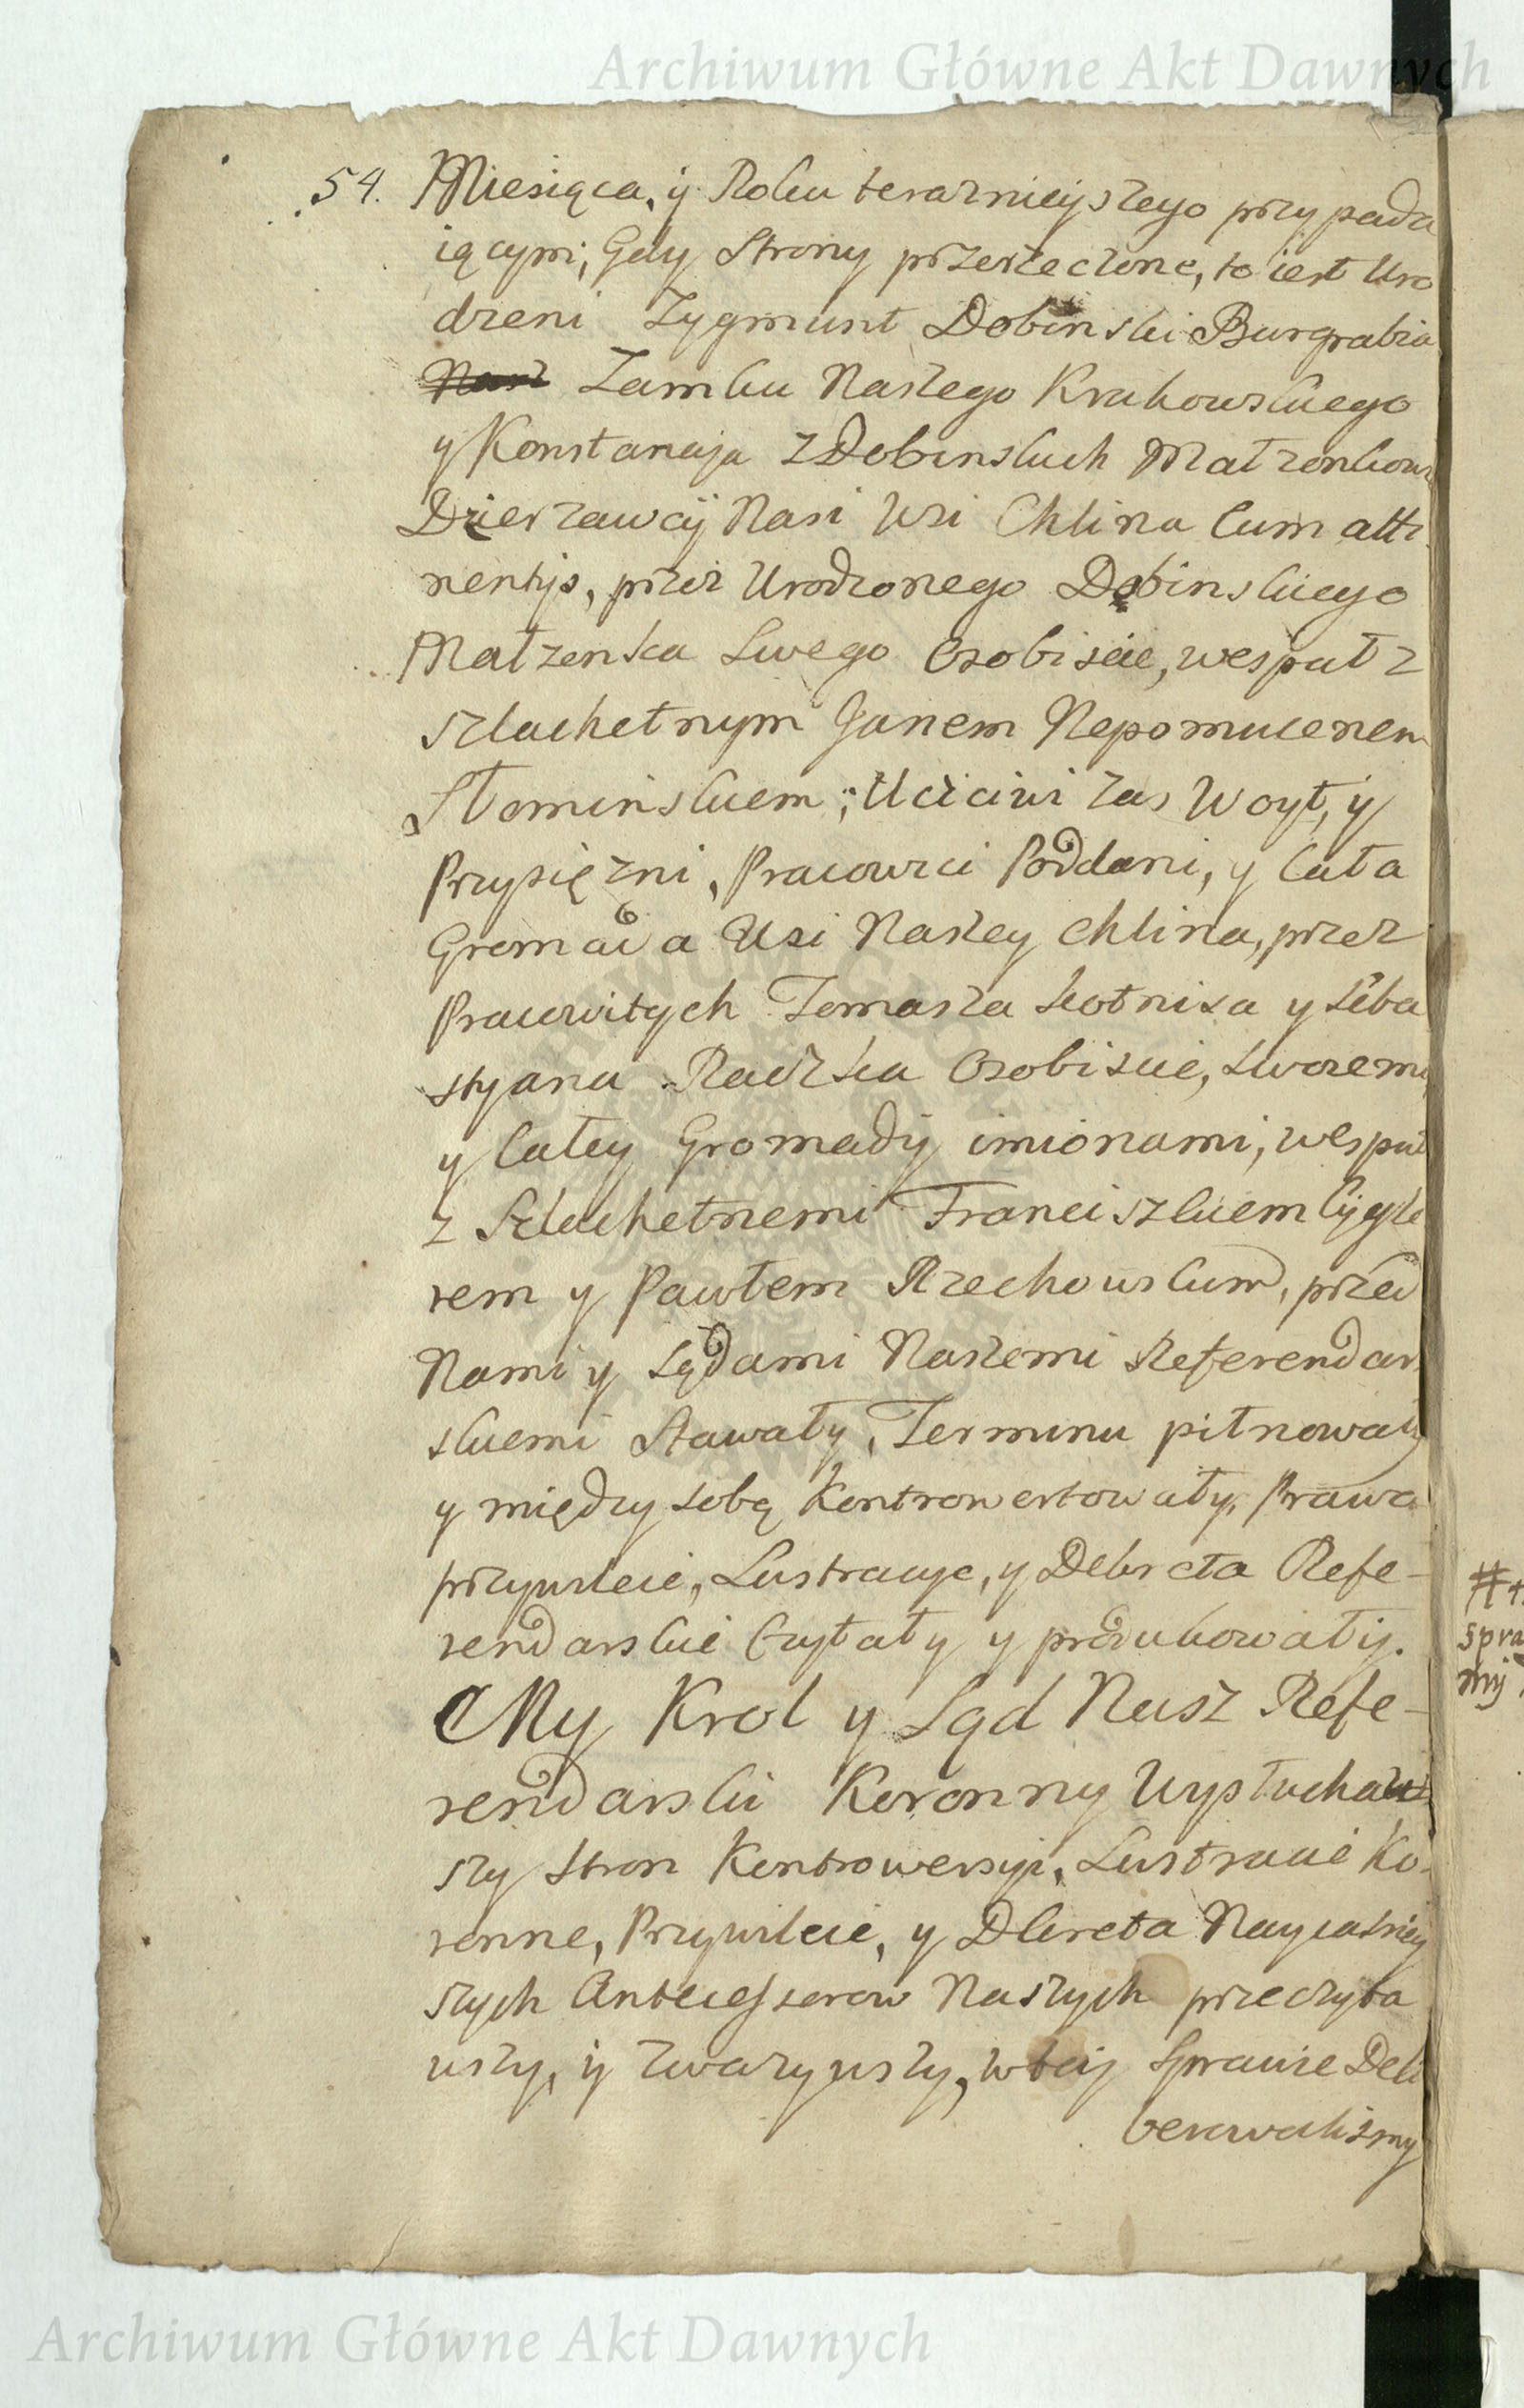 Archiwum Główne Akt Dawnych
54. Miesiąca, y Roku teraznieyszego przypada
iącym; Gdy Strony przerzeczone, to iest Uro
dzeni Zygmunt Dobinski Burgrabia
Nasz Zamku Naszego Krakowskiego
y Konstancja z Dobinskich Małzonkow
Dzierzawcy Nasi Wsi Chlina Cum atti
nentijs, przez Urodzonego Dobinskiego
Małzenka Swego Osobiscie, wespuł z
szlachetnym Janem Nepomucenem
Słominskiem; Uczciwi zas Woyt, y
Przysięzni, Pracowici Poddani, y Cała
Gromada Wsi Naszey Chlina, przez
Pracowitych Tomasza Kotnisa y Seba
styana Radzka Osobiscie, Swoiemi
y Całey Gromady imionami, wespuł
z Szlachetnemi Franciszkiem Cygle
rem y Pawłem Rzechowskim, przed
Nami y Sądami Naszemi Referendar
skiemi Stawały, Terminu pilnowały
y między sobą Kontrowertowały, Prawa
przywileie, Lustracye, y Dekreta Refe-
rendarskie Czytały y produkowały.
My Krol y Sąd Nasz Refe-
rendarski Koronny Wysłuchaw
szy Stron Kontrowersyi, Lustracie Ko-
ronne, Przywileie, y Dekreta Nayiasniey
szych Antecessorow Naszych przeczyta
wszy, y zwazywszy, w tey Sprawie Deli
berowalismy
#
spra
my
Archiwum Główne Akt Dawnych